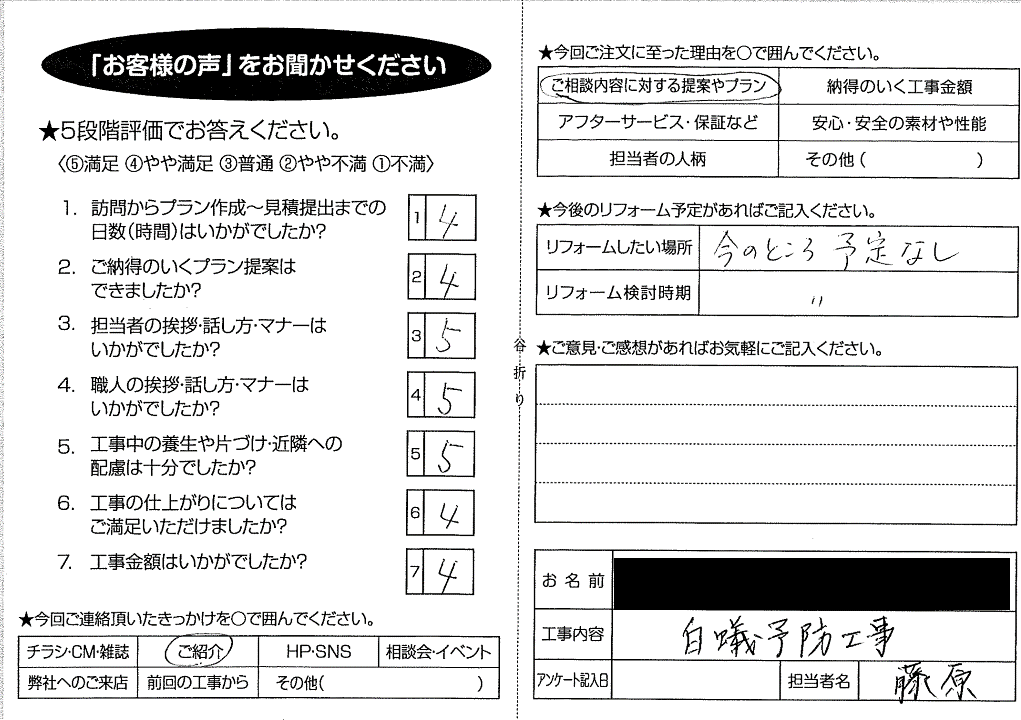 「お客様の声」をお聞かせください
★5段階評価でお答えください。
〈⑤満足 ④やや満足 ③普通 ②やや不満 ①不満〉
1. 訪問からプラン作成～見積提出までの
日数(時間)はいかがでしたか?
1 4
2. ご納得のいくプラン提案は
できましたか?
2 4
3. 担当者の挨拶・話し方・マナーは
いかがでしたか?
3 5
4. 職人の挨拶・話し方・マナーは
いかがでしたか?
4 5
5. 工事中の養生や片づけ・近隣への
配慮は十分でしたか?
5 5
6. 工事の仕上がりについては
ご満足いただけましたか?
6 4
7. 工事金額はいかがでしたか?
7 4
★今回ご連絡頂いたきっかけを○で囲んでください。
チラシ・CM・雑誌 ご紹介 HP・SNS 相談会・イベント
弊社へのご来店 前回の工事から その他( )
谷折り
★今回ご注文に至った理由を○で囲んでください。
ご相談内容に対する提案やプラン 納得のいく工事金額
アフターサービス・保証など 安心・安全の素材や性能
担当者の人柄 その他( )
★今後のリフォーム予定があればご記入ください。
リフォームしたい場所 今のところ 予定なし
リフォーム検討時期 〃
★ご意見・ご感想があればお気軽にご記入ください。
お名前
工事内容 白蟻予防工事
アンケート記入日 担当者名 藤原